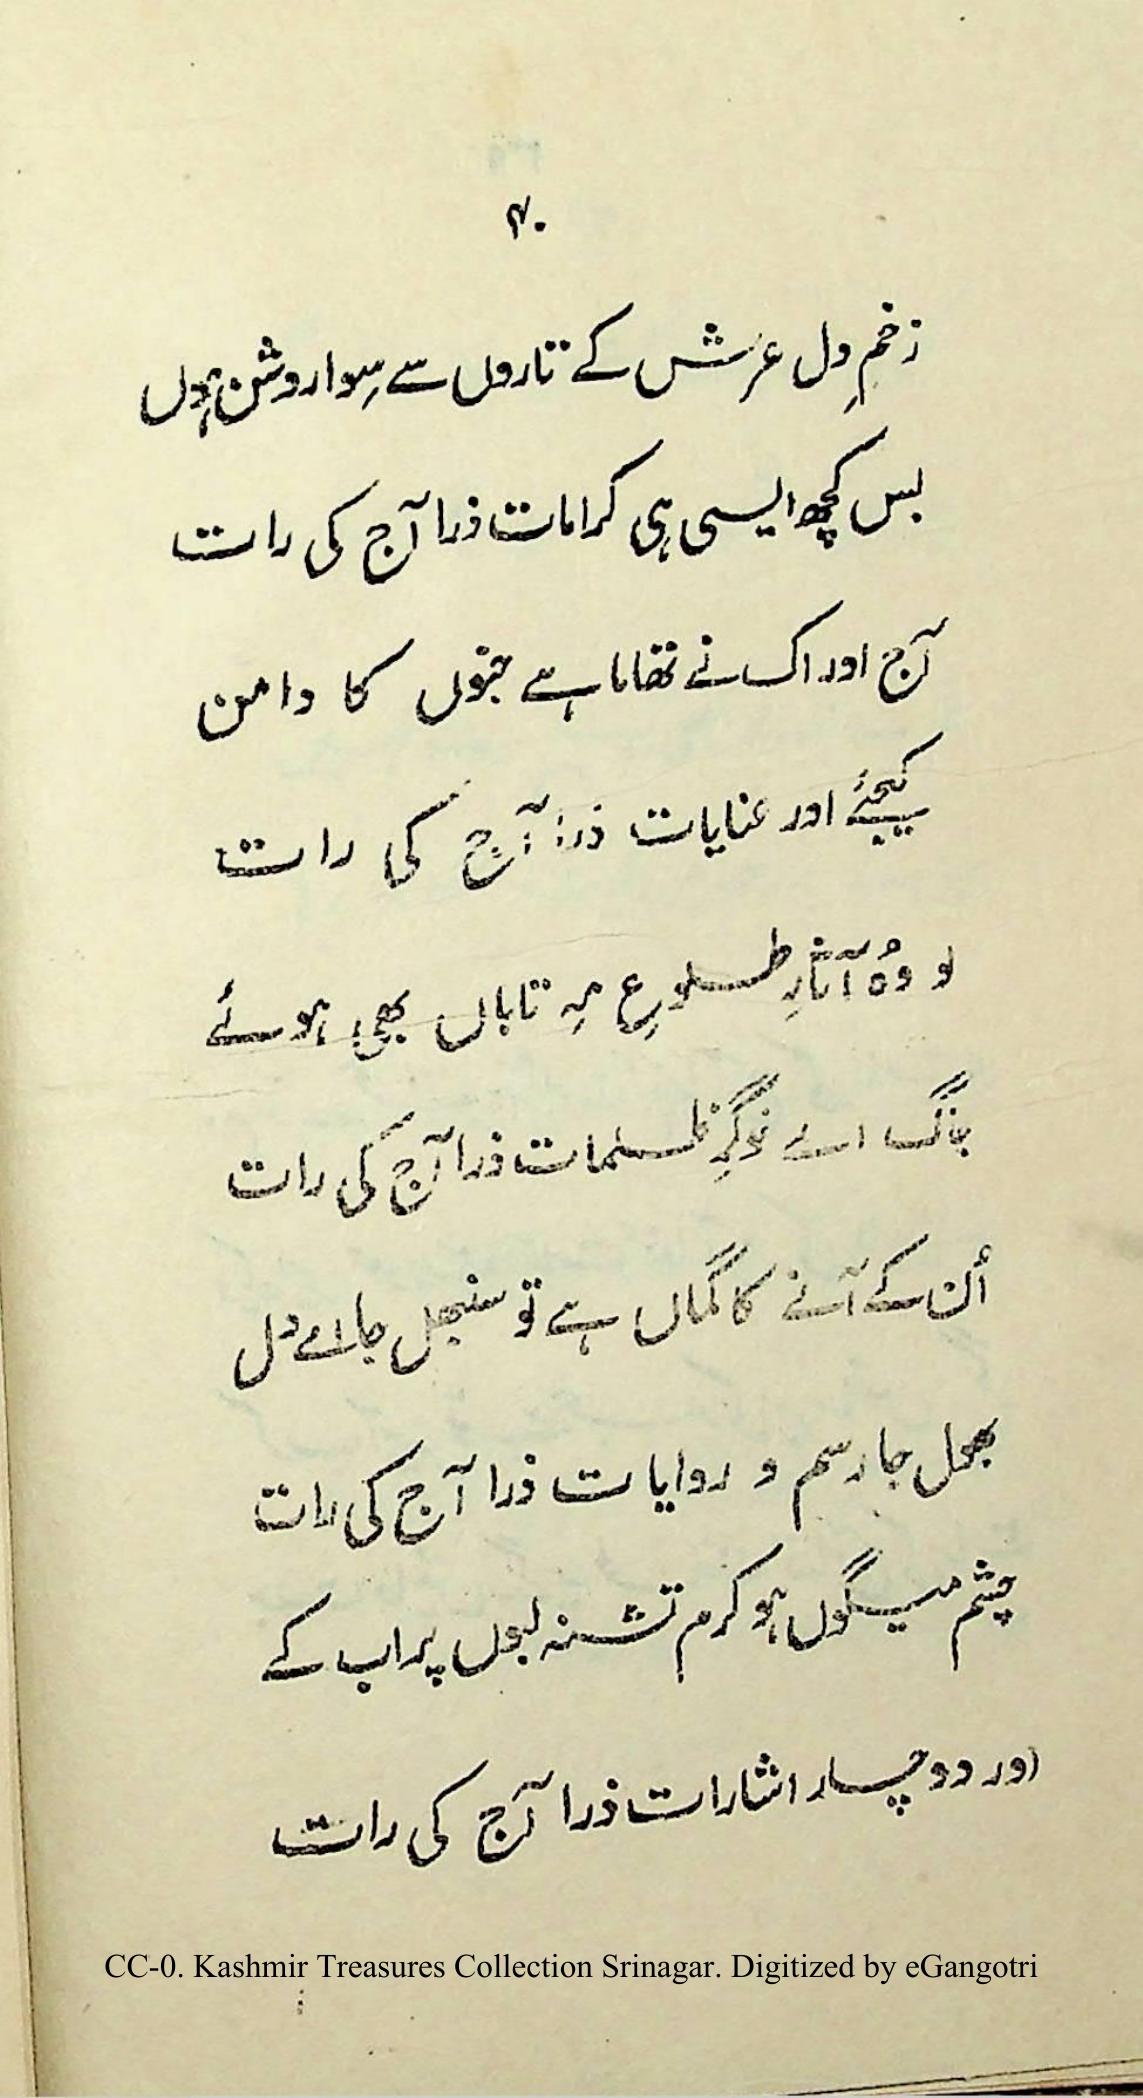 ۴۰
زخمِ دِل عرش کے تاروں سے سِوا روشن ہوں
بس کچھ ایسی ہی کرامات ذرا آج کی رات
آج اور اک نے تھاما ہے جنوں کا دامن
کیجئے اور عنایات ذرا آج کی رات
لو وُہ آثارِ طلوعِ مہِ تاباں بھی ہوئے
جاگ اے خوگرِ ظلمات ذرا آج کی رات
اُن کے آنے کا گماں ہے تو سنبھل جا اے دل
بھول جا رسم و روایات ذرا آج کی رات
چشم میگوں ہو کرم تشنہ لبوں پر اب کے
اور دو چار اشارات ذرا آج کی رات
CC-0. Kashmir Treasures Collection Srinagar. Digitized by eGangotri